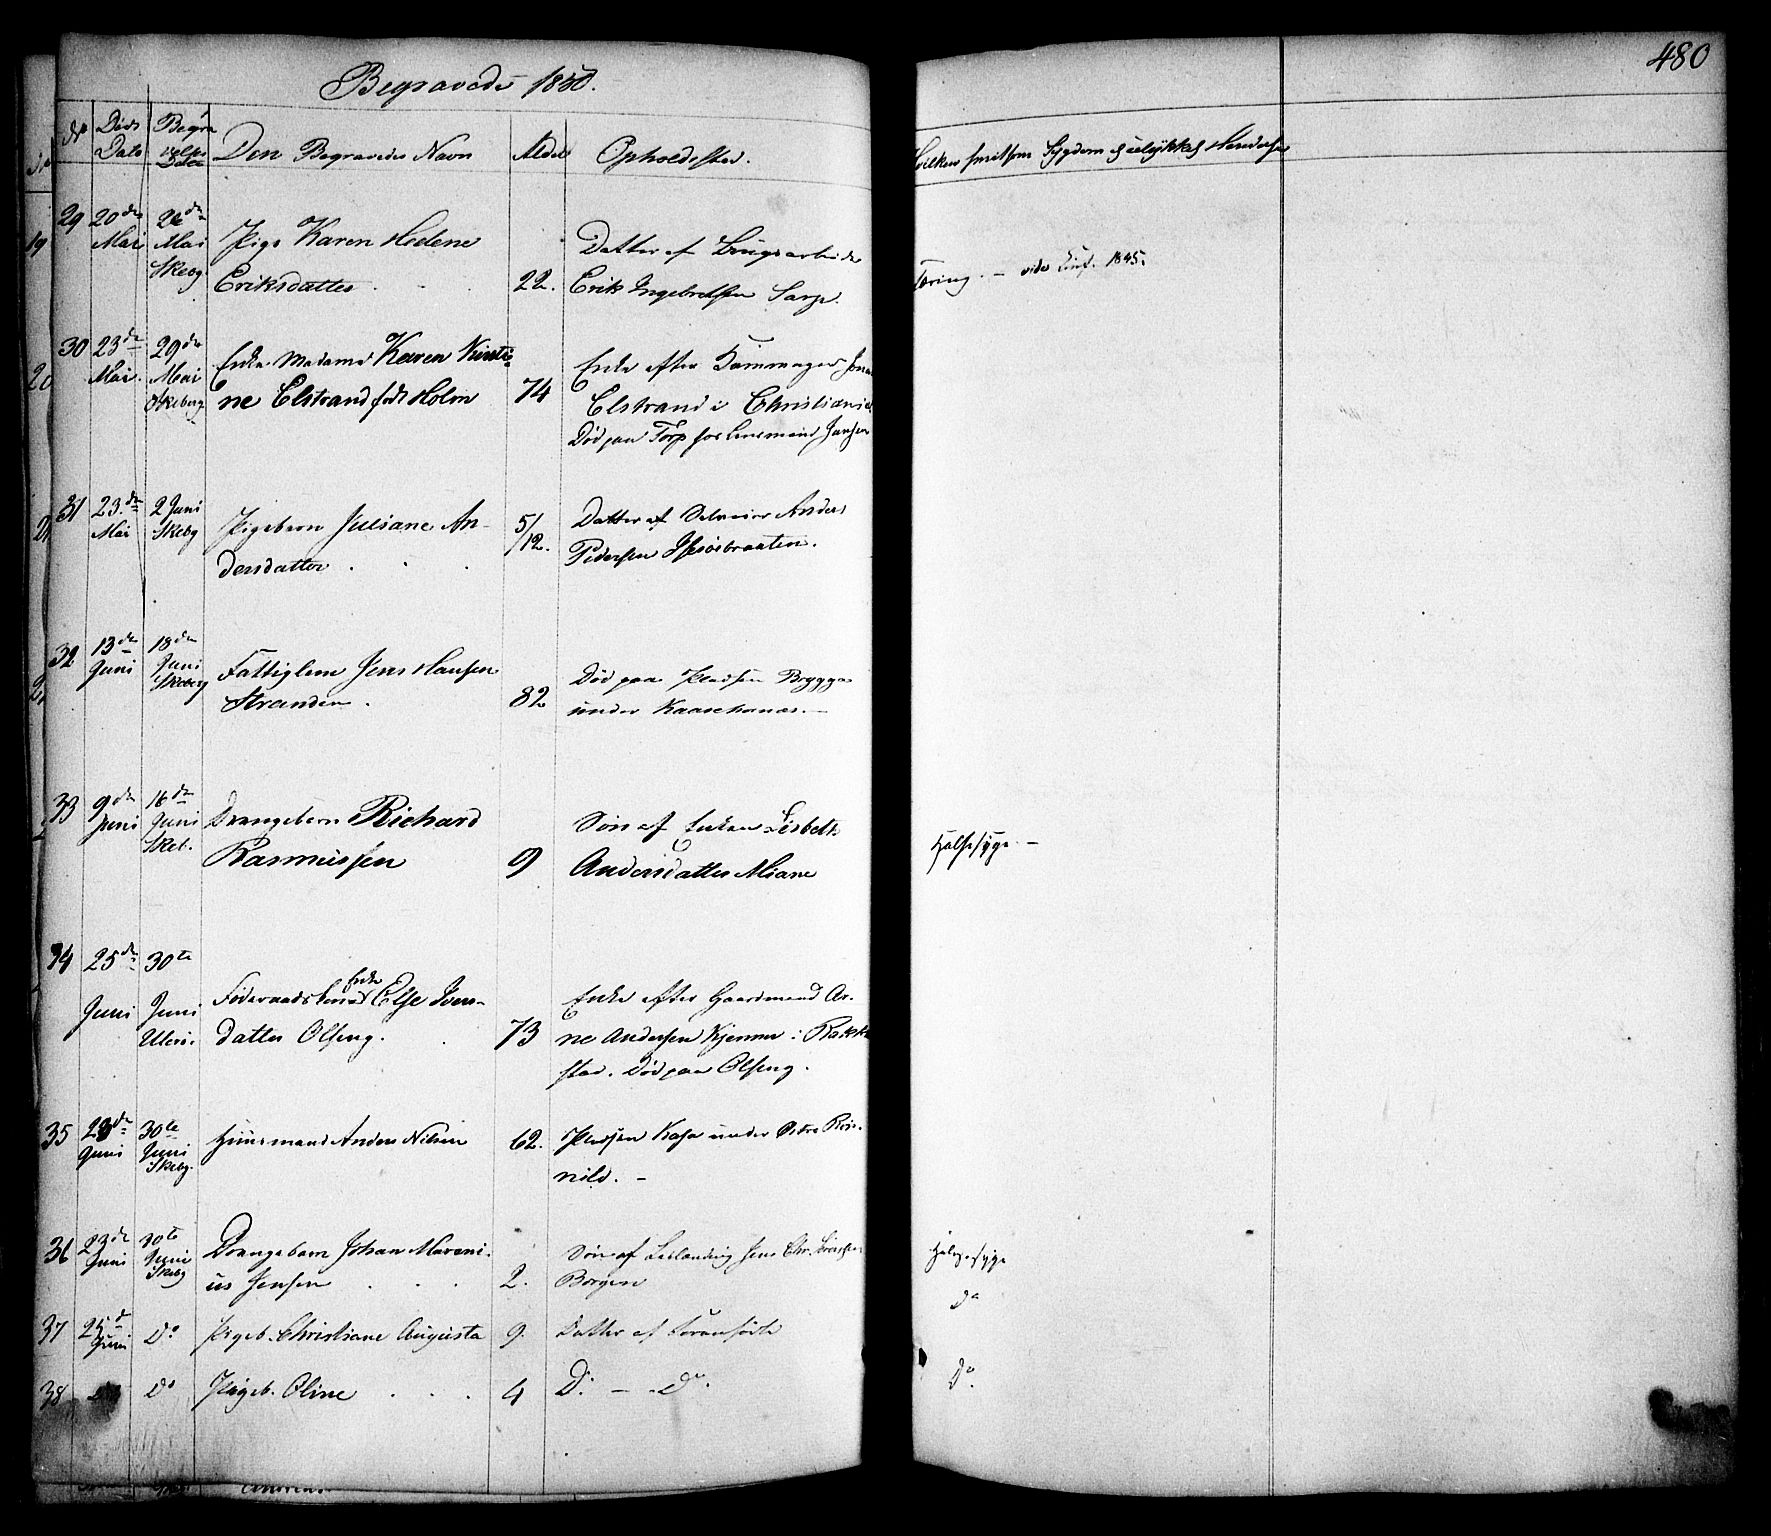 480
Begravede 1850.
No Døds Dato Begravelses Dato Den Begravedes Navn Alder Opholdssted.
29 20de Mai 26de Mai Skebg. Pige Karen Helene
Eriksdatter 22. Datter af Brugsarbeider
Erik Ingebretsen Sarp.
Tæring. – vide Conf. 1845.
30 23de Mai. 29de Mai Skeberg Enke Madame Karen Kirsti-
ne Elstrand født Holm 74 Enke efter Kammager
Elstrand i Christiania
Død paa Torp hos Lensmand Jensen
31 23de Mai 2 Juni Skebg Pigebarn Juliane An-
dersdatter 5/12. Datter af Selveier Anders
Pedersen
32 13de Juni 18de Juni Skeberg Fattiglem Jens Hansen
Stranden. 82 Død paa Pladsen Brygge
under
33 9de Juni 16de Juni Skeb. Drengebarn Richard
Rasmussen 9 Søn af Enken Lisbeth
Andersdatter Moane
Halssyge. –
34 25de Juni 30te Juni Ulleri. Føderaads Enke Else Ivers-
datter Olseng. 73 Enke efter Gaardmand Ar-
ne Andersen Kjenner i Rakke-
stad. Død paa Olseng.
35 Juni 30te Juni Skebg. Huusmand Anders Nilsen 62. Pladsen Kasa under
nild. –
36 23de Juni 30te Juni Skebg Drengebarn Johan Mareni-
us Jensen 2. Søn af Leilænding Jens Chr. Sørensen
Borgen
Halsesyge
37 Juni Do Pigeb. Christiane Augusta 9. Datter af Foranførte
Do
38 Do Pigeb. Oline 4 Do – Do.
Do.